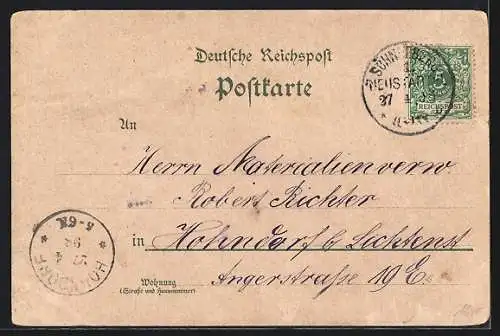 Deutsche Reichspost
Postkarte
SCHNEEBERG
NEUSTÄDTEL
27 4
5
REICHSPOST
An
Herrn Materialienverw.
Robert Richter
in Hohndorf b Lichtenst
Angerstraße 19 E.
Wohnung
(Straße und Hausnummer)
HOHNDORF
27 4
98
5-6N